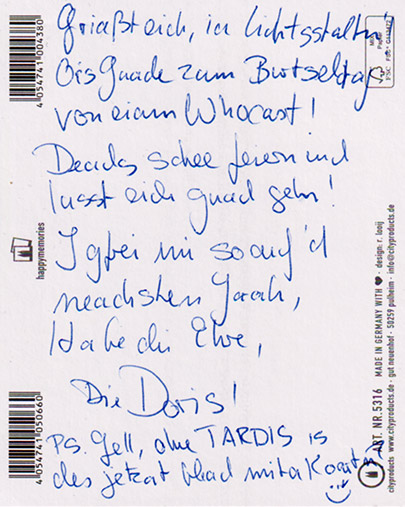 Griaßt eich, ia Lichtsstaltn,
Ois Guade zum Burtseltag
von eiam Whocast!
Deads schee feiern und
lasst eich guad gehn!
I gfrei mi so auf'd
neachsten
Habe die Ehre,
Die Doris!
Ps. Gell, ohne TARDIS is
des jetzat blad mit a
4 054741 004380
happymemories
4 054741 050660
ART. NR. 5316 MADE IN GERMANY WITH ❤ · design: r. looij
cityproducts · gut neuenhof · 50259 pulheim · info@cityproducts.de
www.cityproducts.de
FSC